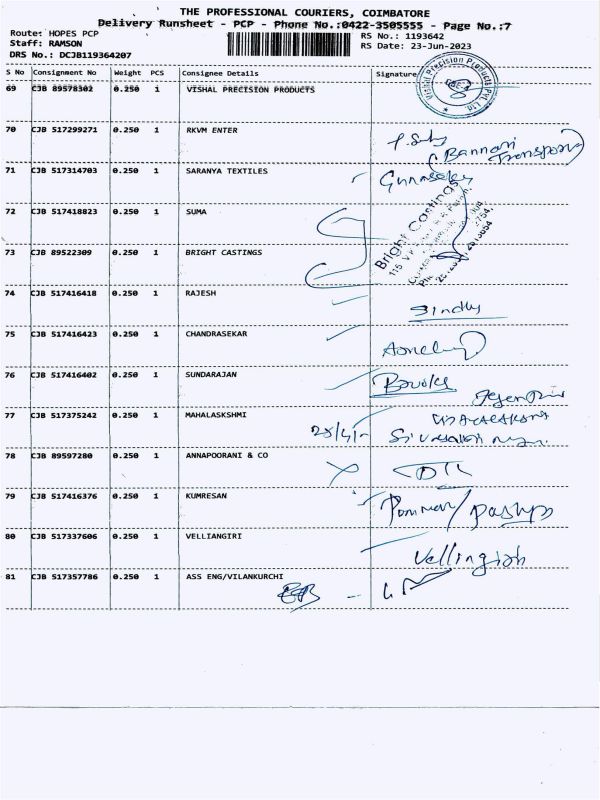 THE PROFESSIONAL COURIERS, COIMBATORE
Delivery Runsheet - PCP - Phone No.:0422-3505555 - Page No.:7
Route: HOPES PCP
Staff: RAMSON
DRS No.: DCJB119364207
RS No.: 1193642
RS Date: 23-Jun-2023
S No Consignment No Weight PCS Consignee Details Signature
69 CJB 89578302 0.250 1 VISHAL PRECISION PRODUCTS
Vishal Precision Products Pvt. Ltd.
70 CJB 517299271 0.250 1 RKVM ENTER
Bannari
Transport
71 CJB 517314703 0.250 1 SARANYA TEXTILES
72 CJB 517418823 0.250 1 SUMA
Bright Castings
73 CJB 89522309 0.250 1 BRIGHT CASTINGS
74 CJB 517416418 0.250 1 RAJESH
Sindhu
75 CJB 517416423 0.250 1 CHANDRASEKAR
76 CJB 517416402 0.250 1 SUNDARAJAN
77 CJB 517375242 0.250 1 MAHALASKSHMI
78 CJB 89597280 0.250 1 ANNAPOORANI & CO
79 CJB 517416376 0.250 1 KUMRESAN
80 CJB 517337606 0.250 1 VELLIANGIRI
81 CJB 517357786 0.250 1 ASS ENG/VILANKURCHI